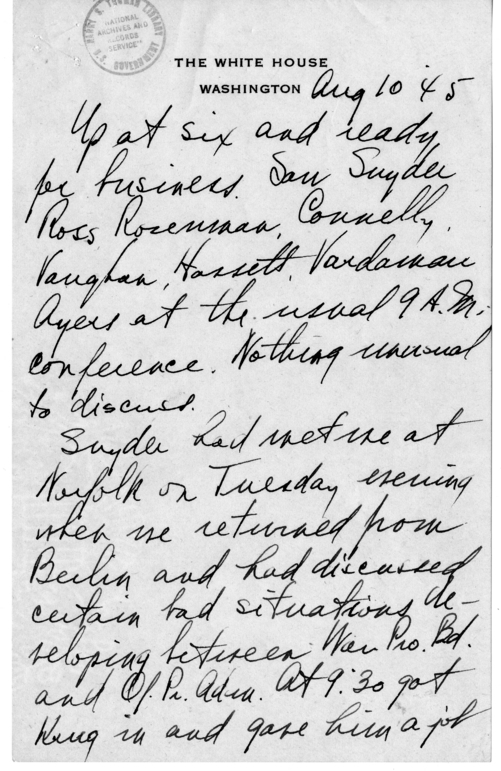 HARRY S. TRUMAN LIBRARY
NATIONAL
ARCHIVES AND
RECORDS
SERVICE
U.S. GOVERNMENT
THE WHITE HOUSE
WASHINGTON Aug 10 '45
Up at six and ready
for business. Saw Snyder
Ross, Rosenman, Connelly,
Vaughan, Hassett, Vardaman
Ayers at the usual 9 A.M.
conference. Nothing unusual
to discuss.
Snyder had met me at
Norfolk on Tuesday evening
when we returned from
Berlin and had discussed
certain bad situations de-
veloping between War Pro. Bd.
and Of. Pr. Adm. At 9:30 got
Krug in and gave him a job